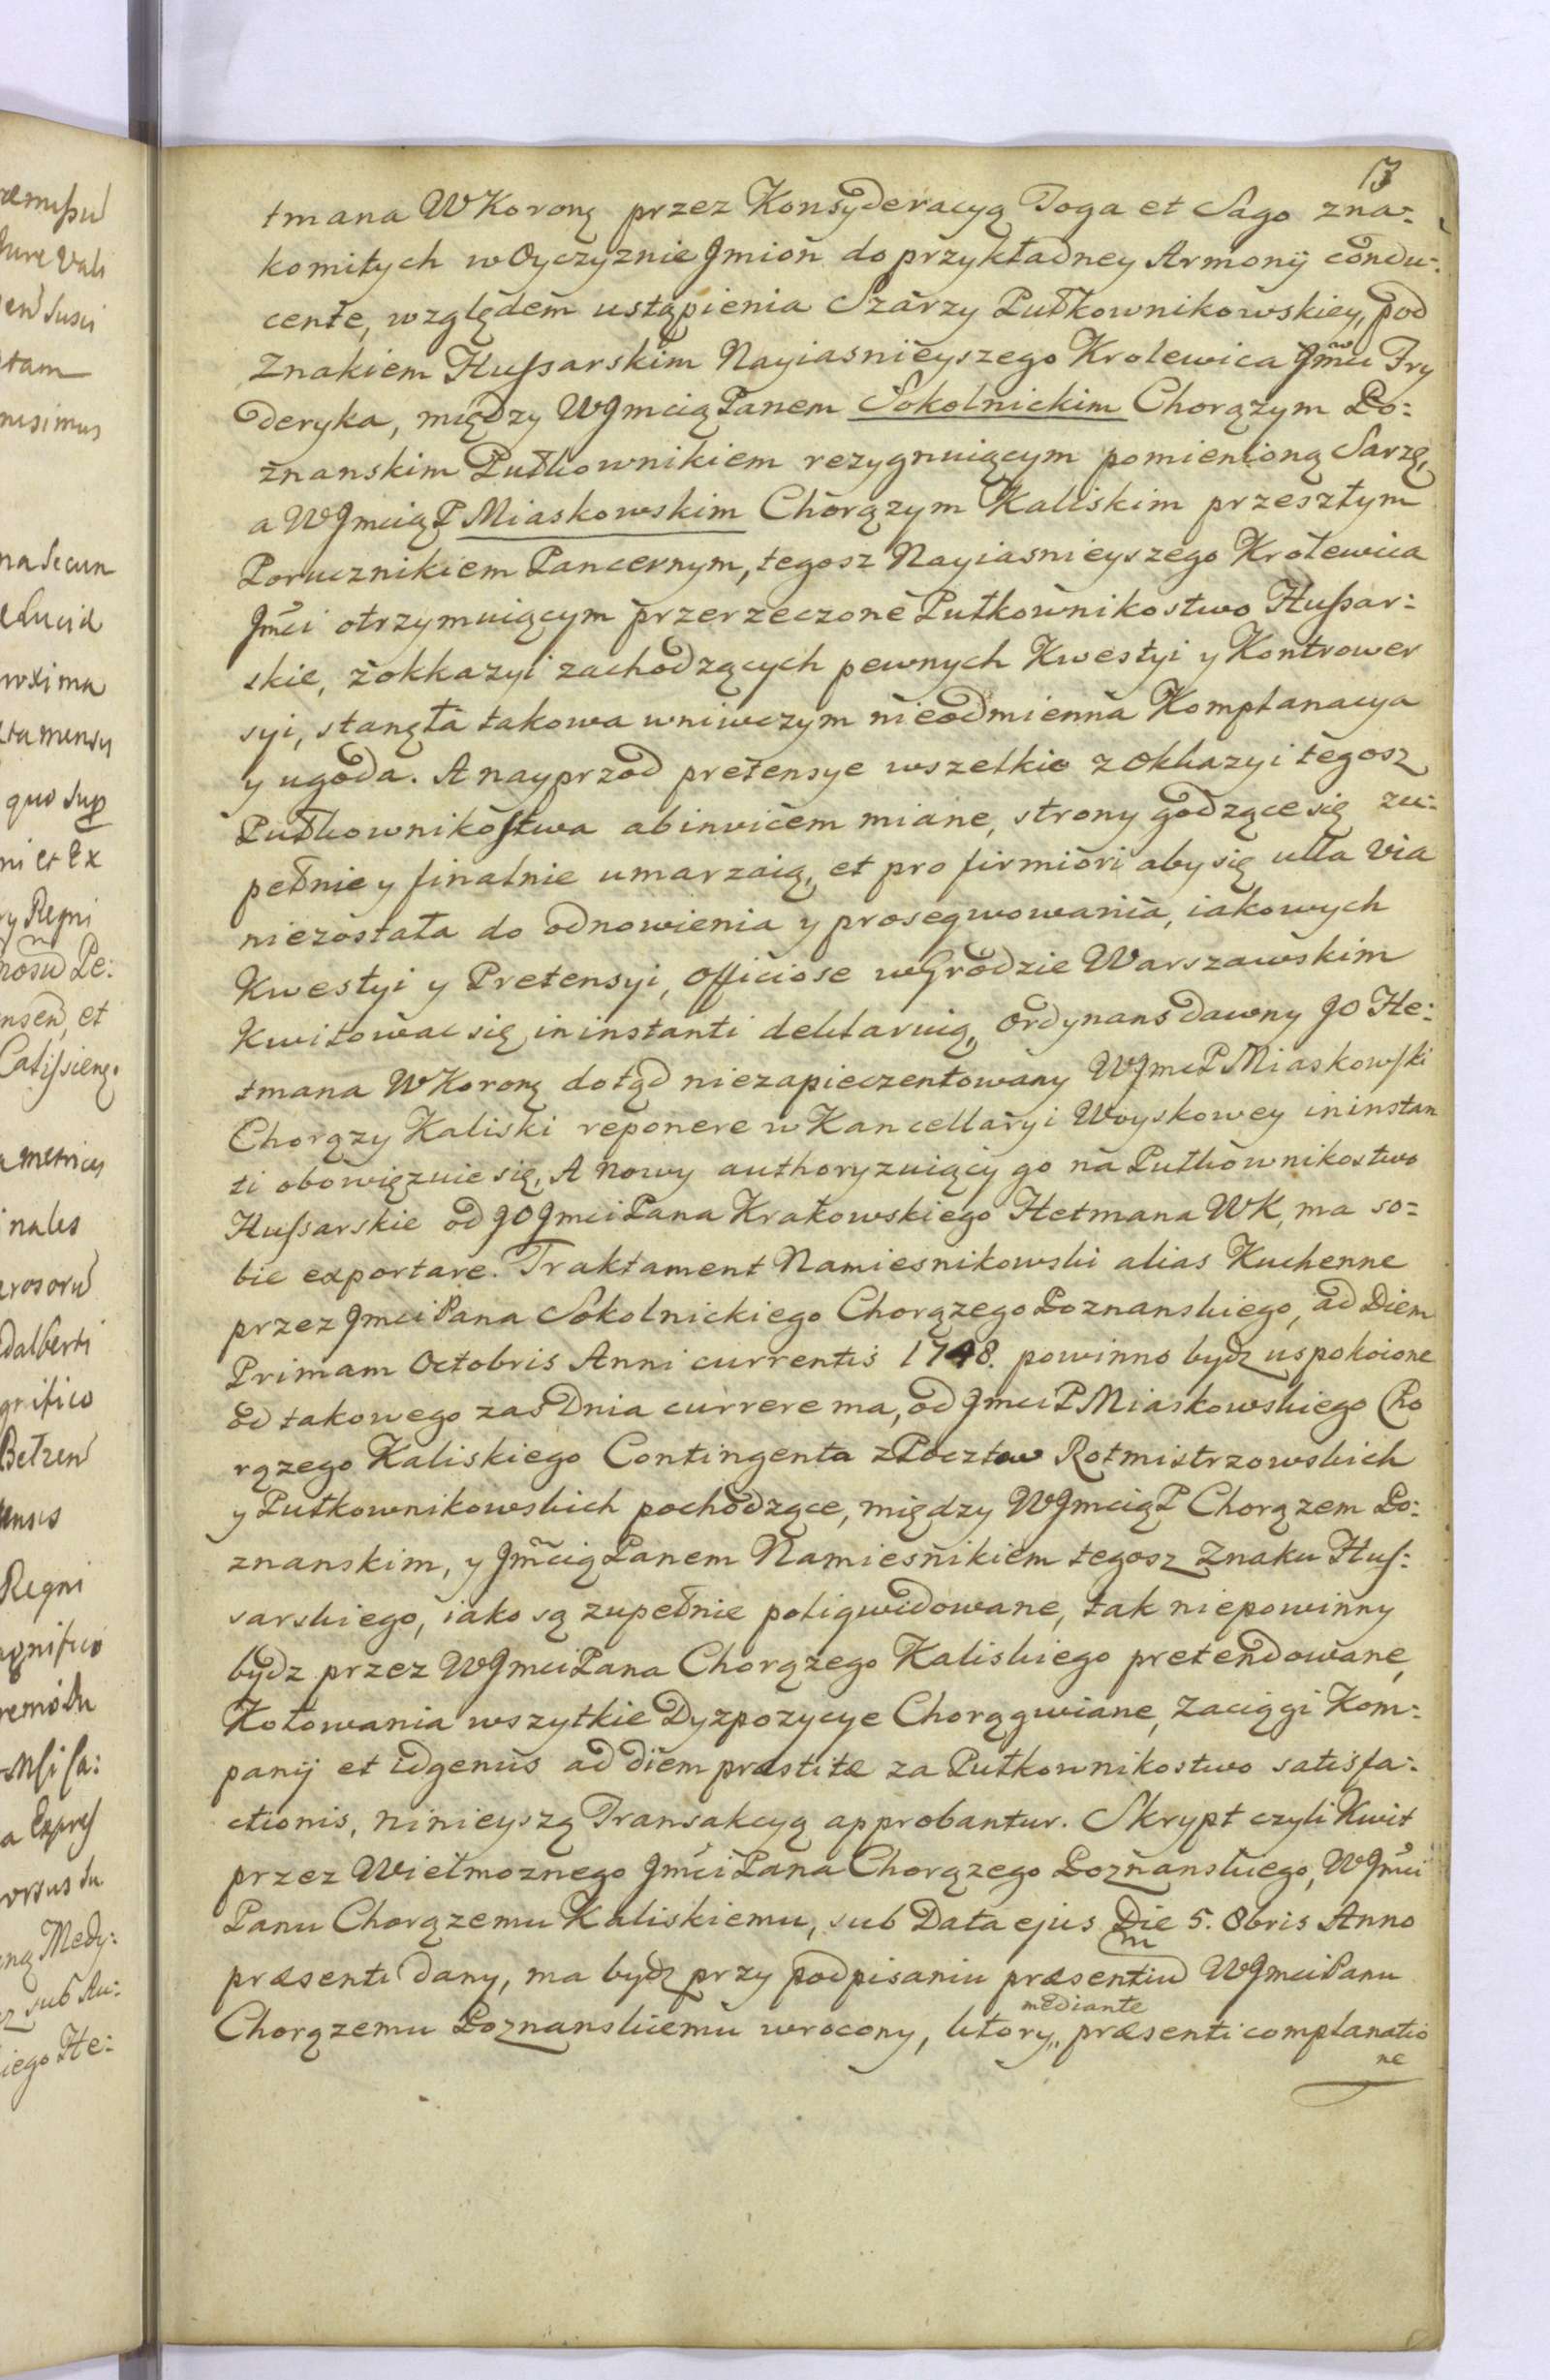 13
tmana WKoronę przez Konsyderacyą Toga et Sago zna-
komitych w Oyczyznie Jmion do przykładney Armonij condu-
cente, względem ustąpienia Szarzy Pułkownikowskiey, pod
Znakiem Hussarskim Nayiasnieyszego Krolewica Jmci Fry
deryka, między WJmcią Panem Sokolnickim Chorązym Po-
znanskim Pułkownikiem rezygnuiącym pomienioną Sarzę,
a WJmcią P Miaskowskim Chorązym Kaliskim przeszłym
Porucznikiem Pancernym, tegosz Nayiasnieyszego Krolewica
Jmci otrzymuiącym przerzeczone Pułkownikostwo Hussar-
skie, z okkazyi zachodzących pewnych Kwestyi y Kontrower
syi, stanęła takowa wniwczym nieodmienna Komplanacya
y ugoda. A nayprzod pretensye wszelkie z Okkazyi tegosz
Pułkownikostwa abinvicem miane, strony godzące się zu-
pełnie y finalnie umarzaią, et pro firmiori aby się ulla via
niezostała do odnowienia y prosegwowania, iakowych
Kwestyi y Pretensyi, officiose w Grodzie Warszawskim
Kwitowac się in instanti deklaruią, Ordynans dawny JO He-
tmana WKoronę dotąd niezapieczentowany WJmc P Miaskowski
Chorązy Kaliski reponere w Kancellaryi Woyskowey in instan
ti obowięzuie się, A Nowy authoryzuiący go na Pułkownikostwo
Hussarskie od JO Jmci Pana Krakowskiego Hetmana WK, ma so-
bie exportare. Traktament Namiesnikowski alias Kuchenne
przez Jmci Pana Sokolnickiego Chorązego Poznanskiego, ad Diem
Primam Octobris Anni currentis 1748. powinno bydz uspokoione
od takowego zas Dnia currere ma, od Jmci P Miaskowskiego Cho
rązego Kaliskiego Contingenta z Pocztow Rotmistrzowskich
y Pułkownikowskich pochodzące, między WJmcią P Chorązem Po-
znanskim, y Jmcią Panem Namiesnikiem tegosz Znaku Hus-
sarskiego, iako są zupełnie poligwidowane, tak niepowinny
bydz przez WJmci Pana Chorązego Kaliskiego pretendowane,
Kołowania wszytkie Dyzpozycye Chorągwiane, Zaciągi Kom-
panij et id genus ad diem præstitæ za Pułkownikostwo satisfa-
ctionis, ninieyszą Transakcyą approbantur. Skrypt czyli Kwit
przez Wielmoznego Jmci Pana Chorązego Poznanskiego, WJmci
Panu Chorązemu Kaliskiemu, sub Data ejus Die 5. 8bris Anno
præsenti dany, ma bydz przy podpisaniu præsentium WJmci Panu
Chorązemu Poznanskiemu wrocony, ktory,, mediante præsenti complanatio
ne